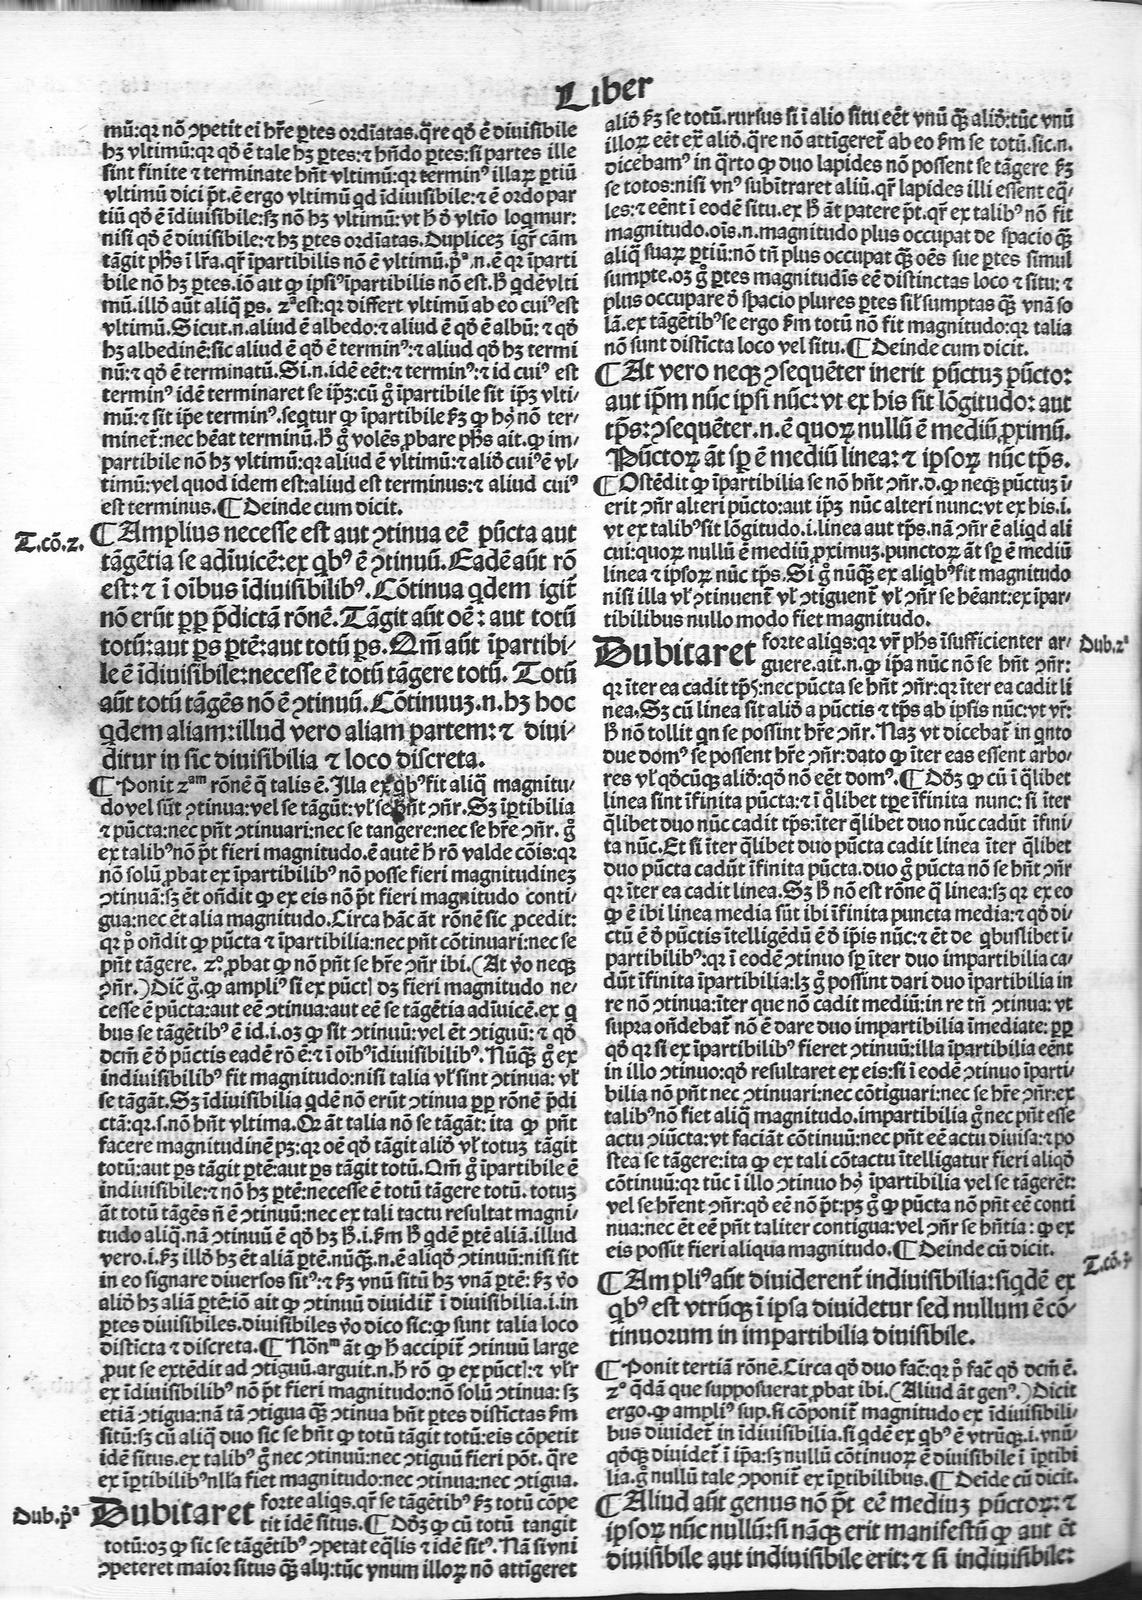 Liber
mū:qꝛ nō ↄpetit ei hr̄e ꝑtes ordīatas.q̄re qd̄ ē diuisibile
hȝ vltimū:qꝛ qd̄ ē tale hȝ ꝑtes:⁊ hñdo ꝑtes:si partes ille
sint finite ⁊ terminate hn̄t vltimū:qꝛ terminꝰ illaꝝ ꝑtiū
vltimū dici p̄t.ē ergo vltimū qd īdiuisibile:⁊ ē ordo par
tiū qd̄ ē īdiuisibile:sȝ nō hȝ vltimū:vt h̄ d̄ vltīo loqmur:
nisi qd̄ ē diuisibile:⁊ hȝ ꝑtes ordīatas.Duplicez igr̄ cām
tāgit ph̄s ī lr̄a.qꝛ īpartibilis nō ē vltimū.pᵃ.n.ē qꝛ īparti
bile nō hȝ ꝑtes.iō ait ꝙ ipsiꝰ īpartibilis nō est.h̄ qdē vlti
mū.illō aūt aliq̄ ꝑs. 2ᵃ est:qꝛ differt vltimū ab eo cuiꝰ est
vltimū.Sicut.n.aliud ē albedo:⁊ aliud ē qd̄ ē albū:⁊ qd̄
hȝ albedinē:sic aliud ē qd̄ ē terminꝰ:⁊ aliud qd̄ hȝ termi
nū:⁊ qd̄ ē terminatū.Si.n.idē eēt:⁊ terminꝰ:⁊ id cuiꝰ est
terminꝰ idē terminaret se ip̄ȝ:cū g̊ īpartibile sit ip̄ȝ vlti⸗
mū:⁊ sit ip̄e terminꝰ.seqtur ꝙ īpartibile ẜȝ ꝙ hꝰ nō ter⸗
minet̄:nec hēat terminū.h̄ g̊ volēs ꝓbare ph̄s ait.ꝙ im⸗
partibile nō hȝ vltimū:qꝛ aliud ē vltimū:⁊ aliō cuiꝰ ē vl⸗
timū:vel quod idem est:aliud est terminus:⁊ aliud cuiꝰ
est terminus.¶ Deinde cum dicit.
T.cō.2.
¶ Amplius necesse est aut ↄtinua eē pūcta aut
tāgētia se adīuicē:ex qbꝰ ē ↄtinuū.Eadē aūt rō
est:⁊ ī oībus īdiuisibilibꝰ.Cōtinua qdem igit̄
nō erūt ꝓp p̄dictā rōnē.Tāgit aūt oē: aut totū
totū:aut ꝑs ꝑtē:aut totū ꝑs.Qm̄ aūt īpartibi⸗
le ē īdiuisibile:necesse ē totū tāgere totū.Totū
aūt totū tāgēs nō ē ↄtinuū.Cōtinuuȝ.n.hȝ hoc
qdem aliam:illud vero aliam partem:⁊ diui⸗
ditur in sic diuisibilia ⁊ loco discreta.
¶ Ponit 2ᵃᵐ rōnē q̄ talis ē.Illa ex qbꝰ fit aliq̄ magnitu⸗
do vel sūt ↄtinua:vel se tāgūt:vl̄ se hn̄t ↄñr.Sȝ īꝑtibilia
⁊ pūcta:nec pn̄t ↄtinuari:nec se tangere:nec se hr̄e ↄñr.g̊
ex talibꝰ nō p̄t fieri magnitudo.ē autē h̄ rō valde cōis:qꝛ
nō solū ꝓbat ex īpartibilibꝰ nō posse fieri magnitudineȝ
ↄtinuā:sȝ ēt oñdit ꝙ ex eis nō p̄t fieri magnitudo conti⸗
gua:nec ēt alia magnitudo.Circa hāc āt rōnē sic ꝓcedit:
qꝛ p̊ oñdit ꝙ pūcta ⁊ īpartibilia:nec pn̄t cōtinuari:nec se
pn̄t tāgere. 2° ꝓbat ꝙ nō pn̄t se hr̄e ↄñr ibi.(At v̄o neqȝ
ↄñr.)Dic̄ g̊.ꝙ ampliꝰ si ex pūct̄ dȝ fieri magnitudo ne⸗
cesse ē pūcta:aut eē ↄtinua:aut eē se tāgētia adīuicē.ex q
bus se tāgētibꝰ ē id.i.oȝ ꝙ sit ↄtinuū:vel ēt ↄtiguū:⁊ qd̄
dcm̄ ē d̄ pūctis eadē rō ē:⁊ ī oībꝰ īdiuisibilibꝰ.Nūqȝ g̊ ex
indiuisibilibꝰ fit magnitudo:nisi talia vl̄ sint ↄtinua: vl̄
se tāgāt.Sȝ īdiuisibilia qdē nō erūt ↄtinua ꝓp rōnē p̄di
ctā:qꝛ.s.nō hn̄t vltima.Qꝛ āt talia nō se tāgāt: ita ꝙ pn̄t
facere magnitudinē pȝ:qꝛ oē qd̄ tāgit aliō vl̄ totuȝ tāgit
totū:aut ꝑs tāgit ꝑtē:aut ꝑs tāgit totū.Qm̄ g̊ īpartibile ē
indiuisibile:⁊ nō hȝ ꝑtē:necesse ē totū tāgere totū.totuȝ
āt totū tāgēs n̄ ē ↄtinuū:nec ex tali tactu resultat magni⸗
tudo aliq̄.nā ↄtinuū ē qd̄ hȝ h̄.i.ẜm h̄ qdē ꝑtē aliā.illud
vero.i.ẜȝ illō hȝ ēt aliā ꝑtē.nūqȝ.n.ē aliqd̄ ↄtinuū:nisi sit
in eo signare diuersos sitꝰ:⁊ ẜȝ vnū sitū hȝ vnā ꝑtē:ẜȝ v̄o
aliō hȝ aliā ꝑtē:iō ait ꝙ ↄtinuū diuidit̄ ī diuisibilia.i.in
ꝑtes diuisibiles.diuisibiles v̄o dico sic:ꝙ sunt talia loco
disticta ⁊ discreta.¶ Nōnᵐ āt ꝙ h̄ accipit̄ ↄtinuū large
ꝓut se extēdit ad ↄtiguū.arguit.n.h̄ rō ꝙ ex pūct̄:⁊ vlr̄
ex īdiuisibilibꝰ nō p̄t fieri magnitudo:nō solū ↄtinua:sȝ
etiā ↄtigua:nā tā ↄtigua qȝ ↄtinua hn̄t ꝑtes distīctas ẜm
sitū:sȝ cū aliq̄ duo sic se hn̄t ꝙ totū tāgit totū:eis cōpetit
idē situs.ex talibꝰ g̊ nec ↄtinuū:nec ↄtiguū fieri pōt. q̄re
ex īꝑtibilibꝰ nlla fiet magnitudo:nec ↄtinua:nec ↄtigua.
Dub.pᵃ
Dubitaret forte aliqs.qꝛ se tāgētibꝰ ẜȝ totū cōpe
tit idē situs.¶ Dd̄ȝ ꝙ cū totū tangit
totū:oȝ ꝙ sic se tāgētibꝰ ↄpetat eq̄lis ⁊ idē sitꝰ.Nā si vni
ↄpeteret maior situs qȝ alij:tūc vnum illoꝝ nō attigeret
aliō ẜȝ se totū.rursus si ī alio situ eēt vnū qȝ aliō:tūc vnū
illoꝝ eēt ex̄ aliō.q̄re nō attigeret̄ ab eo ẜm se totū.sic.n.
dicebamꝰ in q̄rto ꝙ duo lapides nō possent se tāgere ẜȝ
se totos:nisi vnꝰ subītraret aliū.qꝛ lapides illi essent eq̄⸗
les:⁊ eēnt ī eodē situ.ex h̄ āt patere p̄t.qꝛ ex talibꝰ nō fit
magnitudo.oīs.n.magnitudo plus occupat de spacio qȝ
aliq̄ suaꝝ ꝑtiū:nō tn̄ plus occupat qȝ oēs sue ꝑtes simul
sumpte.oȝ g̊ ꝑtes magnitudīs eē distinctas loco ⁊ situ:⁊
plus occupare d̄ spacio plures ꝑtes sil̄ sumptas qȝ vnā so
lā.ex tāgētibꝰ se ergo ẜm totū nō fit magnitudo:qꝛ talia
nō sunt distīcta loco vel situ.¶ Deinde cum dicit.
¶ At vero neqȝ ↄsequēter inerit pūctuȝ pūcto:
aut ip̄m nūc ipsi nūc:vt ex his sit lōgitudo: aut
tp̄s:ↄsequēter.n.ē quoꝝ nullū ē mediū ꝓximū.
Pūctoꝝ āt sp̄ ē mediū linea:⁊ ipsoꝝ nūc tp̄s.
¶ Ostēdit ꝙ īpartibilia se nō hn̄t ↄñr.d.ꝙ neqȝ pūctuȝ ī⸗
erit ↄñr alteri pūcto:aut ip̄ȝ nūc alteri nunc:vt ex his.i.
vt ex talibꝰ sit lōgitudo.i.linea aut tp̄s.nā ↄñr ē aliqd ali
cui:quoꝝ nullū ē mediū ꝓximuȝ.punctoꝝ āt sp̄ ē mediū
linea ⁊ ipsoꝝ nūc tp̄s.Si g̊ nūqȝ ex aliqbꝰ fit magnitudo
nisi illa vl̄ ↄtinuent̄ vl̄ ↄtiguent̄ vl̄ ↄñr se hēant:ex īpar⸗
tibilibus nullo modo fiet magnitudo.
Dub.2ᵃ
Dubitaret forte aliqs:qꝛ vr̄ ph̄s īsufficienter ar⸗
guere.ait.n.ꝙ īpa nūc nō se hn̄t ↄñr:
qꝛ īter ea cadit tp̄s:nec pūcta se hn̄t ↄñr:qꝛ īter ea cadit li
nea.Sȝ cū linea sit aliō a pūctis ⁊ tp̄s ab ipsis nūc:vt vr̄:
h̄ nō tollit qn se possint hr̄e ↄñr.Naȝ vt dicebat̄ in qnto
due domꝰ se possent hr̄e ↄñr:dato ꝙ īter eas essent arbo⸗
res vl̄ qd̄cūqȝ aliō:qd̄ nō eēt domꝰ.¶ Dd̄ȝ ꝙ cū ī q̄libet
linea sint īfinita pūcta:⁊ ī q̊libet tp̄e īfinita nunc: si īter
q̄libet duo nūc cadit tp̄s:īter q̄libet duo nūc cadūt īfini⸗
ta nūc.Et si īter q̄libet duo pūcta cadit linea īter q̄libet
duo pūcta cadūt īfinita pūcta.duo g̊ pūcta nō se hn̄t ↄñr
qꝛ īter ea cadit linea.Sȝ h̄ nō est rōne q̄ linea:sȝ qꝛ ex eo
ꝙ ē ibi linea media sūt ibi īfinita puncta media:⁊ qd̄ di⸗
ctū ē d̄ pūctis ītelligēdū ē d̄ ip̄is nūc:⁊ ēt de qbuslibet ī⸗
partibilibꝰ:qꝛ ī eodē ↄtinuo sp̄ īter duo impartibilia ca⸗
dūt īfinita īpartibilia:lȝ g̊ possint dari duo īpartibilia in
re nō ↄtinua:īter que nō cadit mediū:in re tn̄ ↄtinua: vt
supra oñdebat̄ nō ē dare duo impartibilia īmediate: ꝓp
qd̄ qꝛ si ex īpartibilibꝰ fieret ↄtinuū:illa īpartibilia eēnt
in illo ↄtinuo:qd̄ resultaret ex eis:si ī eodē ↄtinuo īparti⸗
bilia nō pn̄t nec ↄtinuari:nec cōtiguari:nec se hr̄e ↄñr:ex
talibꝰ nō fiet aliq̄ magnitudo.impartibilia g̊ nec pn̄t esse
actu ↄiūcta:vt faciāt cōtinuū:nec pn̄t eē actu diuisa:⁊ po
stea se tāgere:ita ꝙ ex tali cōtactu ītelligatur fieri aliqd̄
cōtinuū:qꝛ tūc ī illo ↄtinuo hꝰ īpartibilia vel se tāgerēt:
vel se hr̄ent ↄñr:qd̄ eē nō p̄t:pȝ g̊ ꝙ pūcta nō pn̄t eē conti
nua:nec ēt eē pn̄t taliter contigua:vel ↄñr se hn̄tia: ꝙ ex
eis possit fieri aliqua magnitudo.¶ Deinde cū dicit.
T.cō.3.
¶ Ampliꝰ aūt diuiderent̄ indiuisibilia:siqdē ex
qbꝰ est vtrūqȝ ī ipsa diuidetur sed nullum ē cō⸗
tinuorum in impartibilia diuisibile.
¶ Ponit tertiā rōnē.Circa qd̄ duo fac̄:qꝛ p̊ fac̄ qd̄ dcm̄ ē.
2° q̄dā que supposuerat ꝓbat ibi.(Aliud āt genꝰ.)Dicit
ergo.ꝙ ampliꝰ sup.si cōponit̄ magnitudo ex īdiuisibili⸗
bus diuidet̄ in īdiuisibilia.si qdē ex qbꝰ ē vtrūqȝ.i.vnū⸗
qd̄qȝ diuidet̄ ī ip̄a:sȝ nullū cōtinuoꝝ ē diuisibile ī īꝑtibi
lia.g̊ nullū tale ↄponit̄ ex īꝑtibilibus.¶ Deīde cū dicit.
¶ Aliud aūt genus nō p̄t eē mediuȝ pūctoꝝ:⁊
ipsoꝝ nūc nullū:si nāqȝ erit manifestū ꝙ aut ēt
diuisibile aut indiuisibile erit:⁊ si indiuisibile: